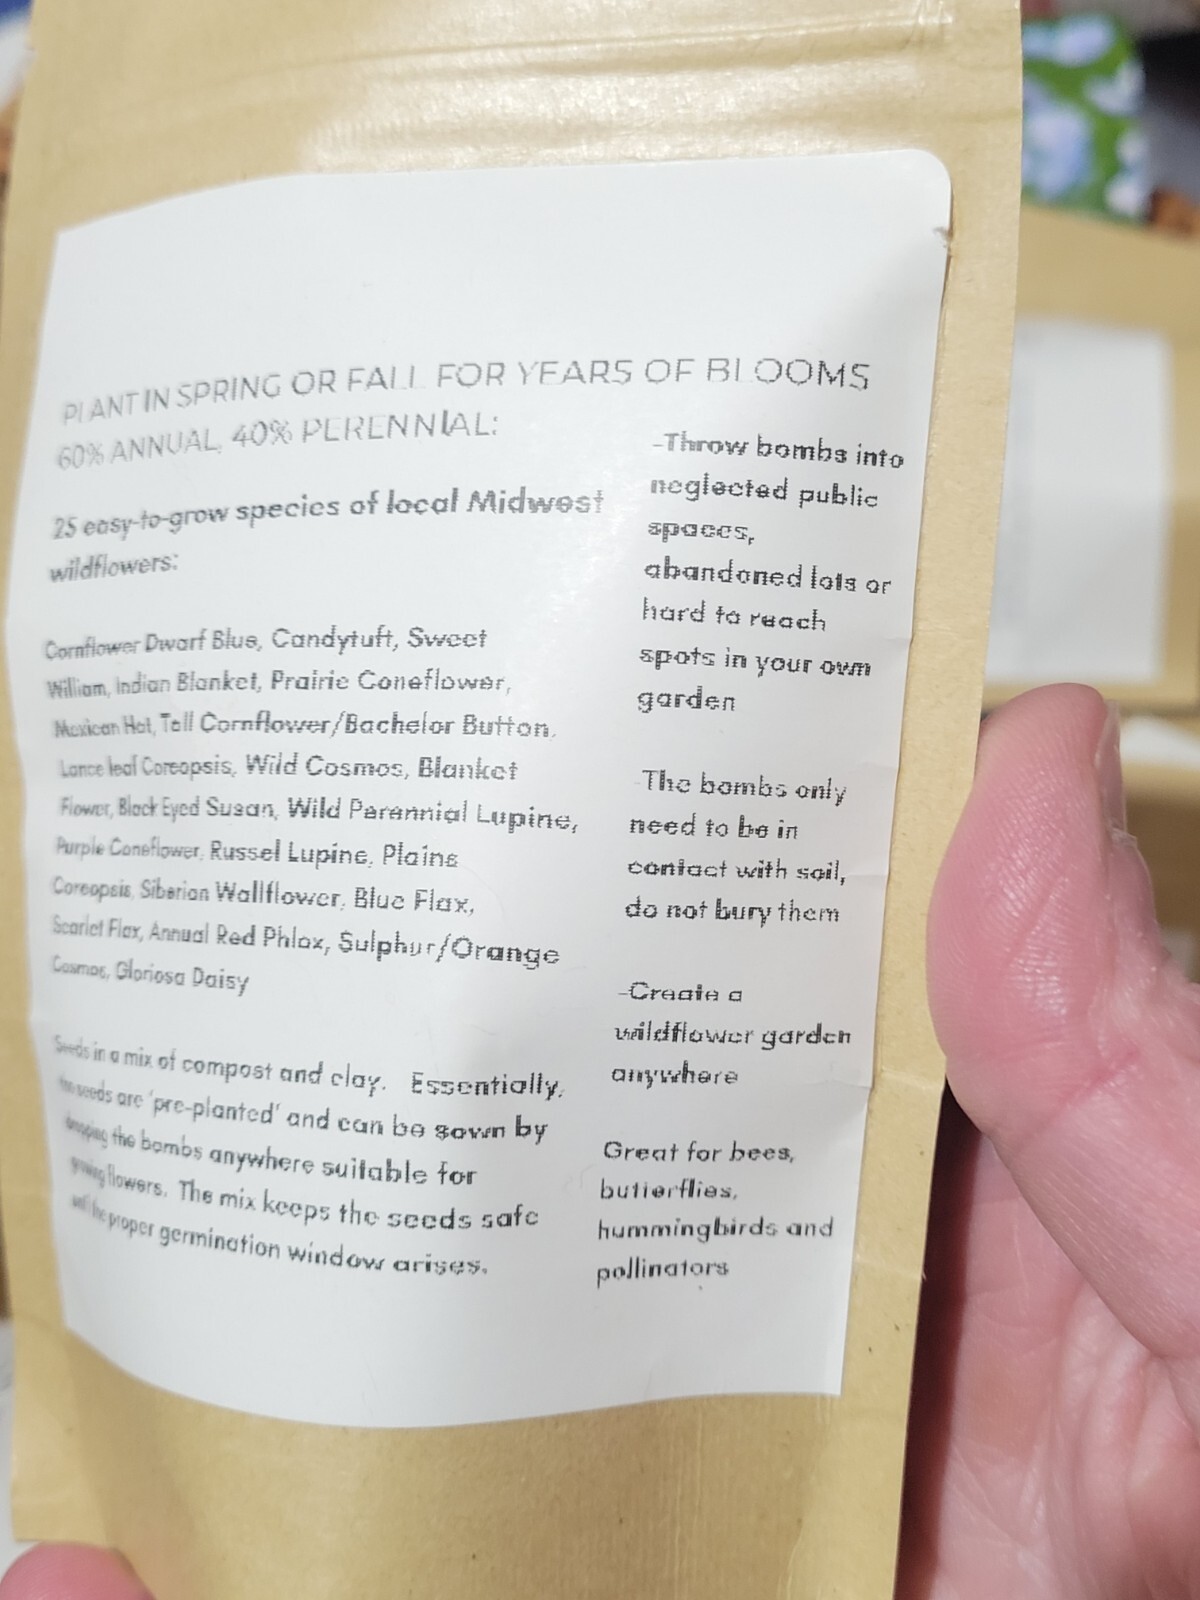 PLANT IN SPRING OR FALL FOR YEARS OF BLOOMS
60% ANNUAL, 40% PERENNIAL:
25 easy-to-grow species of local Midwest
wildflowers:
Cornflower Dwarf Blue, Candytuft, Sweet
William, Indian Blanket, Prairie Coneflower,
Mexican Hat, Tall Cornflower/Bachelor Button,
Lance leaf Coreopsis, Wild Cosmos, Blanket
Flower, Black Eyed Susan, Wild Perennial Lupine,
Purple Coneflower, Russel Lupine, Plains
Coreopsis, Siberian Wallflower, Blue Flax,
Scarlet Flax, Annual Red Phlox, Sulphur/Orange
Cosmos, Gloriosa Daisy
Seeds in a mix of compost and clay. Essentially,
the seeds are 'pre-planted' and can be sown by
dropping the bombs anywhere suitable for
growing flowers. The mix keeps the seeds safe
until the proper germination window arises.
-Throw bombs into
neglected public
spaces,
abandoned lots or
hard to reach
spots in your own
garden
The bombs only
need to be in
contact with soil,
do not bury them
-Create a
wildflower garden
anywhere
Great for bees,
butterflies,
hummingbirds and
pollinators